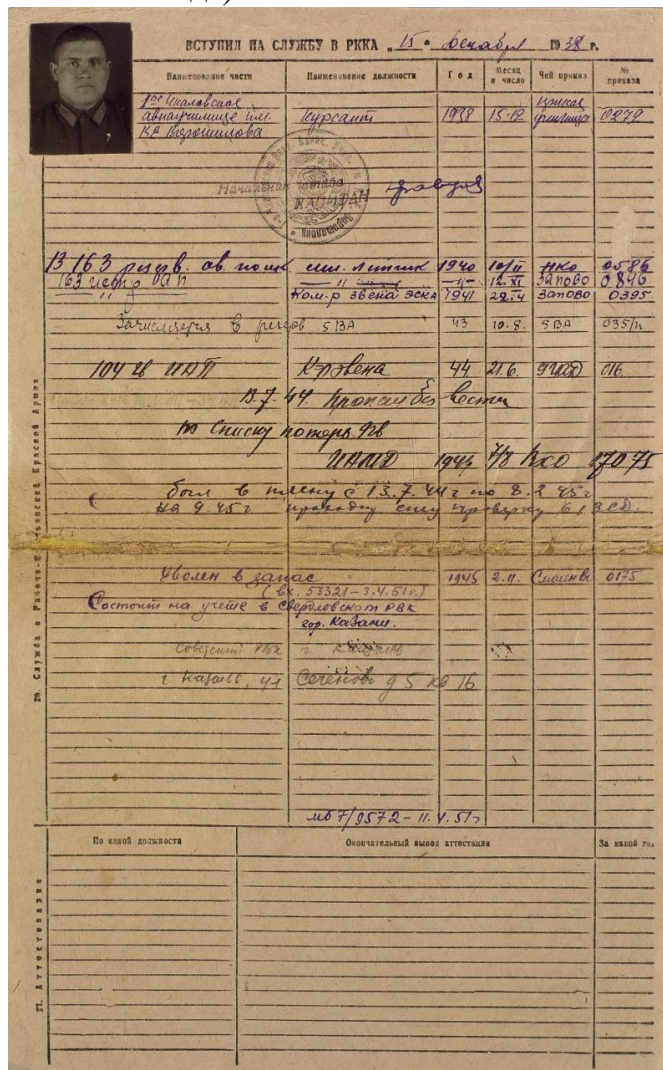 ВСТУПИЛ НА СЛУЖБУ В РККА „15" декабря 1938 г.
Наименование части Наименование должности Год Месяц и число Чей приказ № приказа
1ое Чкаловское
авиаучилище им. Курсант 1938 15.12 училища 0272
К.Е. Ворошилова
Начальник штаба
КАПИТАН
13 163 резерв. ав. полк мл. летчик 1940 10/II НКО 0586
163 истр. ап — " — — " — 12.XI ЗапОВО 0846
— " — Ком-р звена эск. 1941 29.4 ЗапОВО 0395
Зачисляется в резерв 5 ВА 43 10.8. 5 ВА 035/н
104 гв ИАП К-р звена 44 21.6. 9 ГИАД 016
13.7.44 пропал без вести
по списку потерь 9 гв
ИАКД 1944 7/8 17075
был в плену с 13.7.44 г по 8.2.45 г
на 9.45 г проходил спец проверку в 1 ЗСД.
Уволен в запас 1945 2.11. Смолен ВО 0175
(вх. 53321-3.4.51г.)
Состоит на учете в Свердловском РВК
гор. Казани.
Советский РВК г Казань
г Казань, ул Сеченова д 5 кв 16
10. Служба в Рабоче-Крестьянской Красной Армии
мб7/9572-11.V.51г
По какой должности Окончательный вывод аттестации За какой год
11. Аттестование